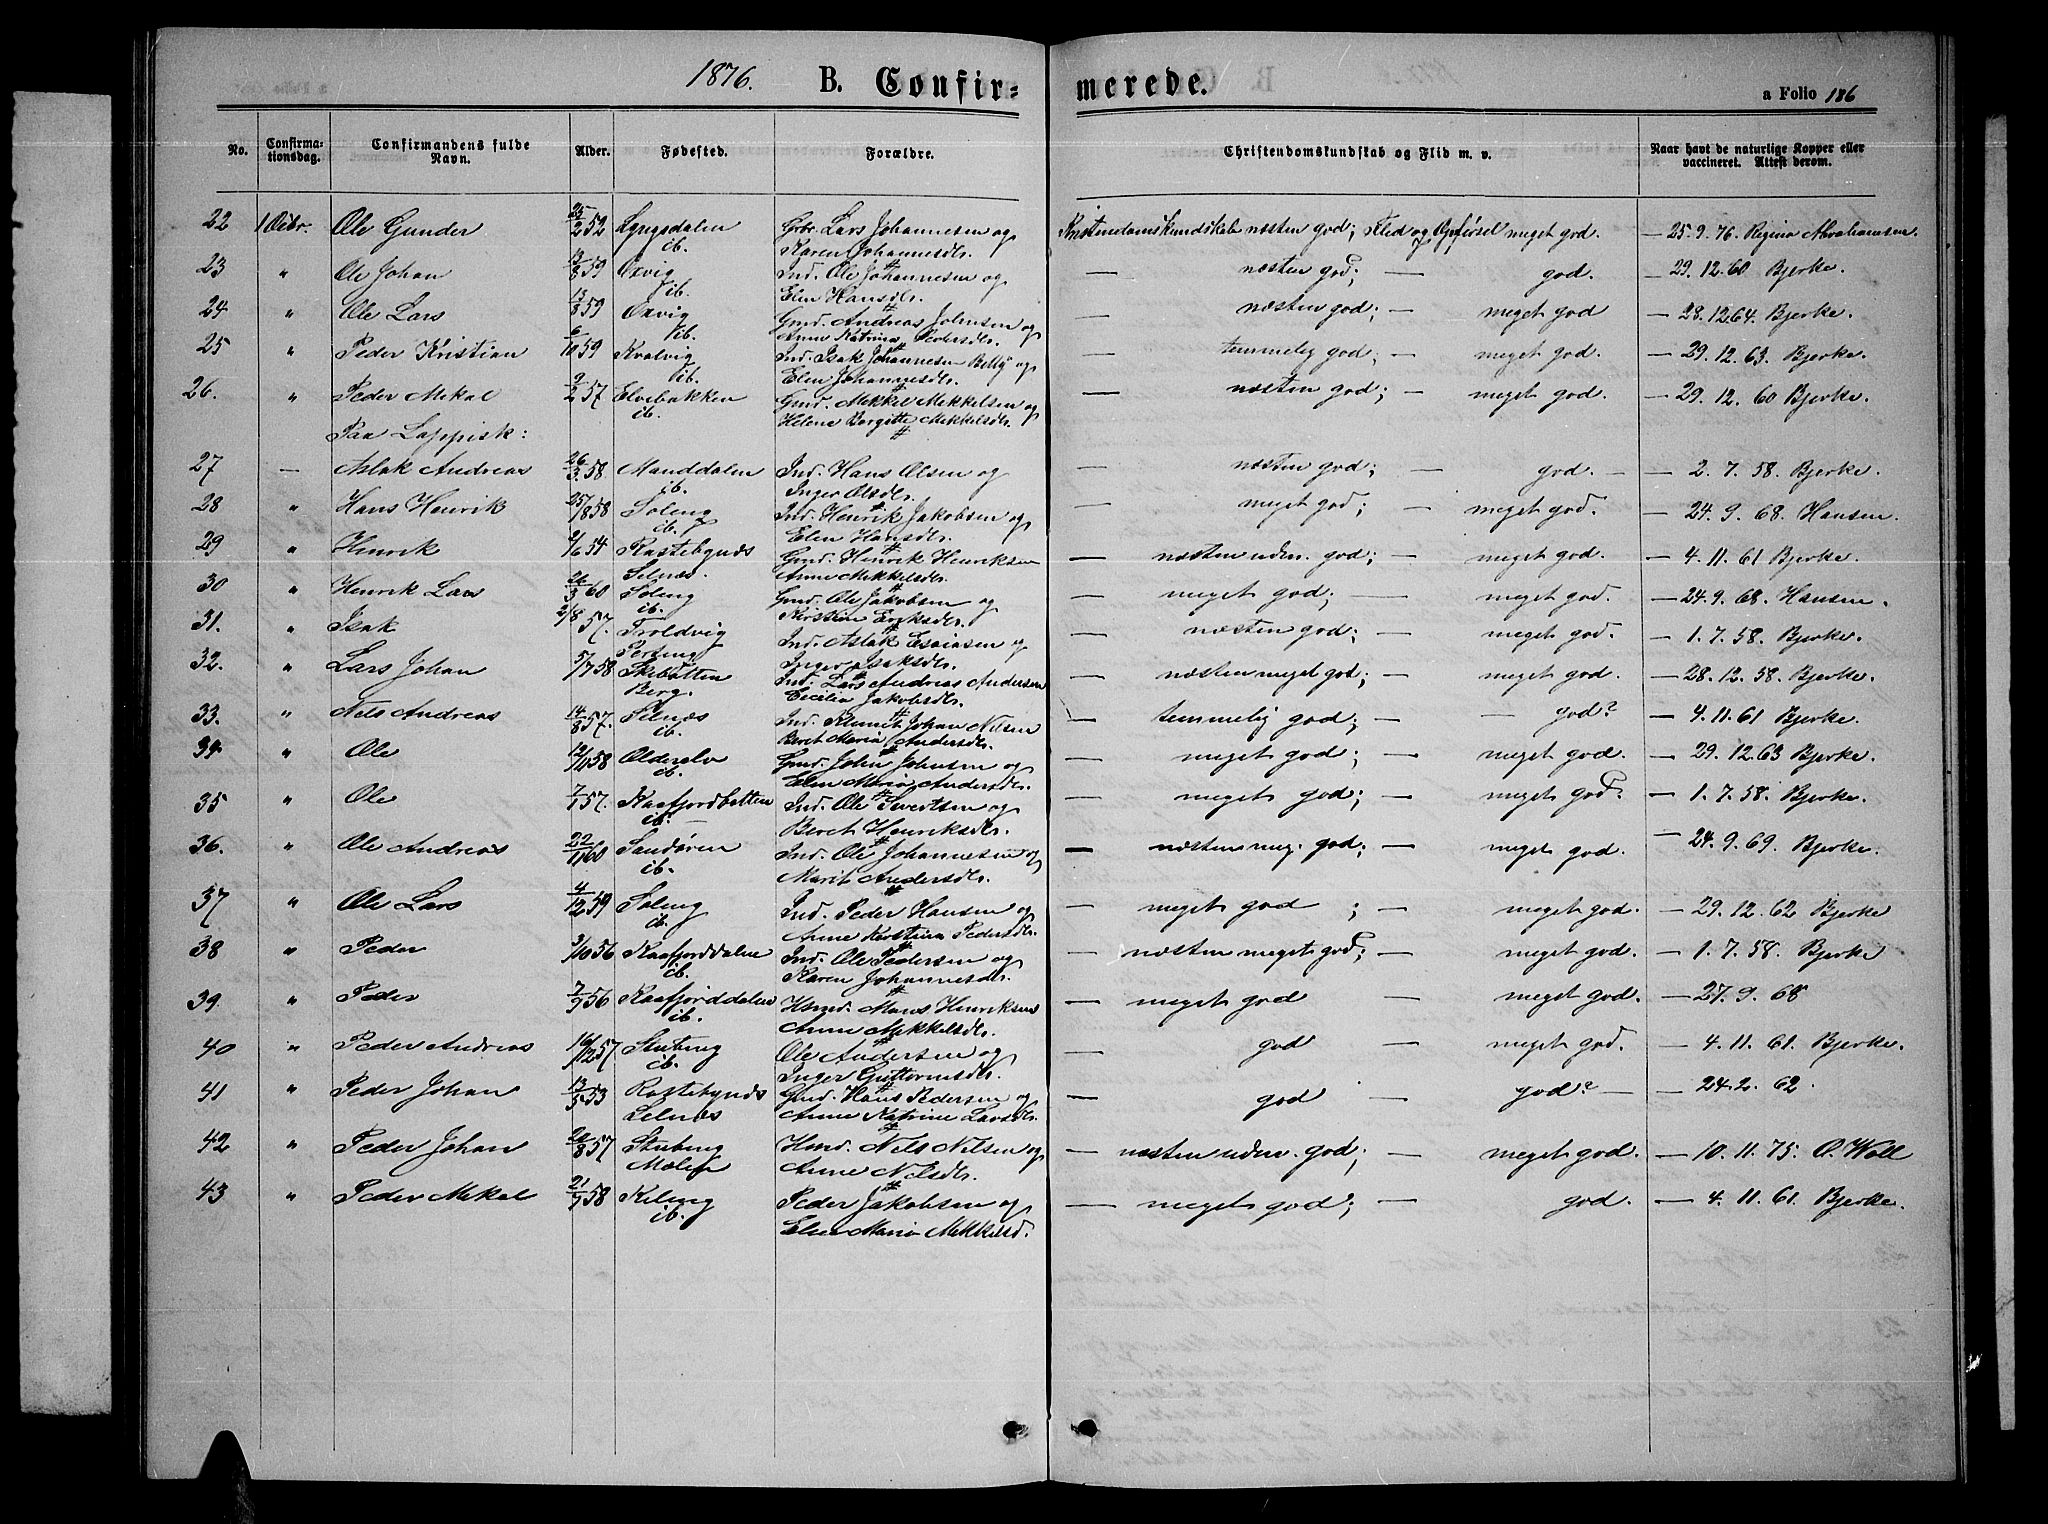 1876. B. Confirmerede. a Folio 186
No. Confirmationsdag. Confirmandens fulde Navn. Alder. Fødested. Forældre. Christendomskundskab og Flid m. v. Naar havt de naturlige Kopper eller vaccineret. Attest derom.
22 1 Octbr. Ole Gunder 25/2 52 Lyngsdalen ib. Gbr. Lars Johannesen og Karen Johannesdtr. Kristendomskundskab næsten god; Flid og Opførsel meget god. — 25. 9. 76 Regina Abrahamsen.
23 " Ole Johan 13/8 59 Oxvig ib. Ind. Ole Johannesen og Elen Hansdtr. — næsten god; — god. — 29. 12. 60 Bjerke.
24 " Ole Lars 13/8 59 Oxvig ib. Gmd. Andreas Johnsen og Anne Katrina Pedersdtr. — næsten god; — meget god — 28. 12 64. Bjerke.
25 " Peder Kristian 6/10 59 Kvalvig ib. Ind. Isak Johannesen og Elen Johannesdtr. — temmelig god; — meget god. — 29. 12. 63. Bjerke.
26. " Peder Mekal 9/2 57 Elvebakken ib. Gmd. Mekkel Mekkelsen og Helene Birgitte Mekkelsdtr. — næsten god; — meget god. — 29. 12. 60 Bjerke.
Paa Lappisk:
27 — Aslak Andreas 26/3 58 Manddalen ib. Ind. Hans Olsen og Inger Olsdtr. — næsten god; — god. — 2. 7. 58 Bjerke.
28 " Hans Henrik 25/8 58 Soleng ib. Ind. Henrik Jakobsen og Elen Hansdtr. — meget god; — meget god. — 24. 9. 68. Hansen.
29 " Henrik /6 54 Rastebynæs Selnæs. Gmd. Henrik Henriksen Anne Mekkelsdtr. — næsten uden. god; — meget god. — 4. 11. 61 Bjerke.
30 " Henrik Lars 26/3 60 Soleng ib. Gmd. Ole Jakobsen og Kirstine Eriksdtr. — meget god; — meget god. — 24. 9. 68. Hansen.
31. " Isak 2/8 57. Troldvig Ind. Aslak Esaiasen og Inger Isaksdtr. — næsten god; — meget god. — 1. 7. 58. Bjerke.
32. " Lars Johan 5/7 58 Skibotten Berg. Ind. Lars Andreas Andersen Cecilia Jakobsdtr. — næsten meget god; — meget god. — 28. 12. 58. Bjerke.
33. " Nels Andreas 14/8 57. Selnæs ib. Ind. Klemet Johan Nilsen Beret Maria Andersdtr. — temmelig god; — — god? — 4. 11. 61 Bjerke.
34 " Ole 12/11 58 Olderelv ib. Gmd. John Johnsen og Elen Maria Andersdtr. — meget god; — meget god. — 29. 12. 63 Bjerke.
35 " Ole 7/1 57. Kaafjordbotten ib. Ind. Ole Sivertsen og Beret Henriksdtr. — meget god; — meget god. — 1. 7. 58. Bjerke.
36. " Ole Andreas 22/11 60 Sandøren ib. Ind. Ole Johannesen og Marit Andersdtr. — næsten meg. god; — meget god. — 24. 9. 69. Bjerke.
37 " Ole Lars 4/12 59 Soleng ib. Ind. Peder Hansen og Anne Kirstina Pedersdtr. — meget god ; — meget god. — 29. 12. 62 Bjerke
38 " Peder 3/10 56 Kaafjorddalen ib. Ind. Ole Pedersen og Karen Johannesdtr. — næsten meget god; — meget god. — 1. 7. 58. Bjerke
39. " Peder 7/9 56 Kaafjorddalen ib. Hsmd. Mons Henriksen Anne Mekkelsdtr. — meget god — meget god. — 27. 9. 68
40 " Peder Andreas 16/12 57 Stubeng ib. Ole Andersen og Inger Guttormsdtr. — god — meget god. — 4. 11. 61. Bjerke.
41 " Peder Johan 13/5 53 Rastebynæs Selnæs Gmd. Hans Pedersen og Anne Katrine Larsdtr. — god — god? — — 24. 2. 62.
42 " Peder Johan 20/8 57 Stubeng Hsmd. Nels Nilsen og Anne Nilsdtr. — næsten uden. god; — meget god. — 10. 11. 75. O. Woll
43 " Peder Mekal 21/7 58 Kileng ib. Peder Jakobsen og Elen Maria Mekkelsd. — meget god; — god. — 4. 11. 61. Bjerke.